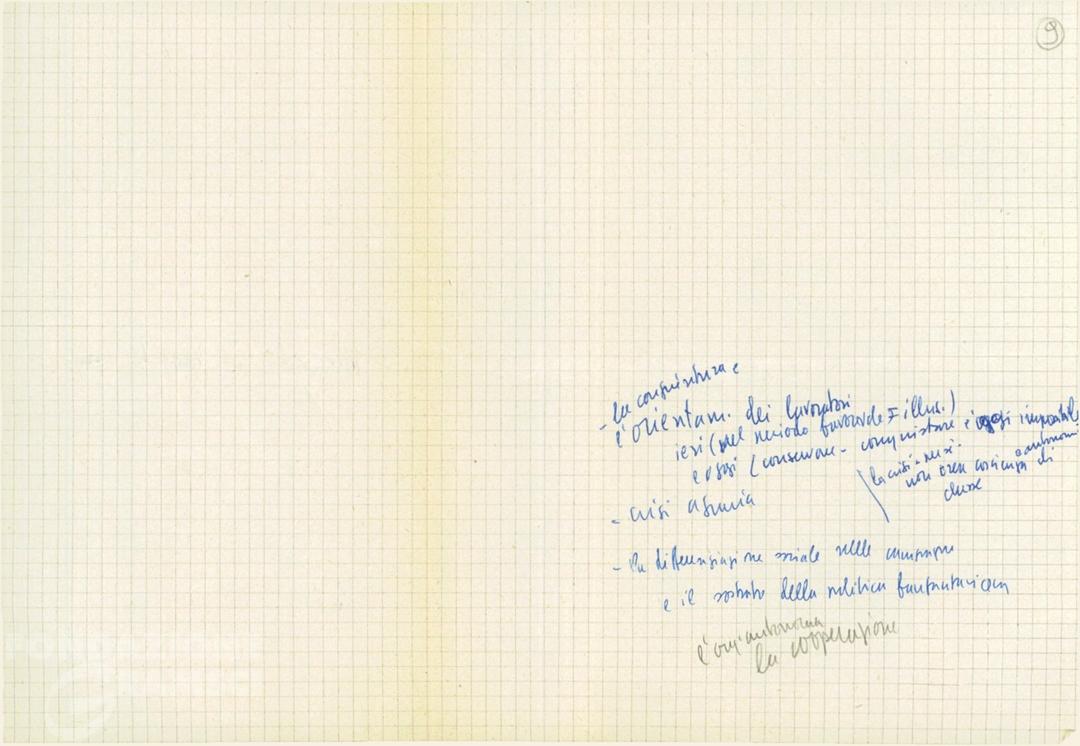 9
- la congiuntura e
l'orientam. dei lavoratori
ieri (nel periodo favorevole = illus.)
e oggi (conservare - conquistare è oggi impossibile
la crisi
non crea coscienza di
classe
autonoma
- crisi agraria
- la differenziazione sociale nelle campagne
e il sostrato della politica
la cooperazione